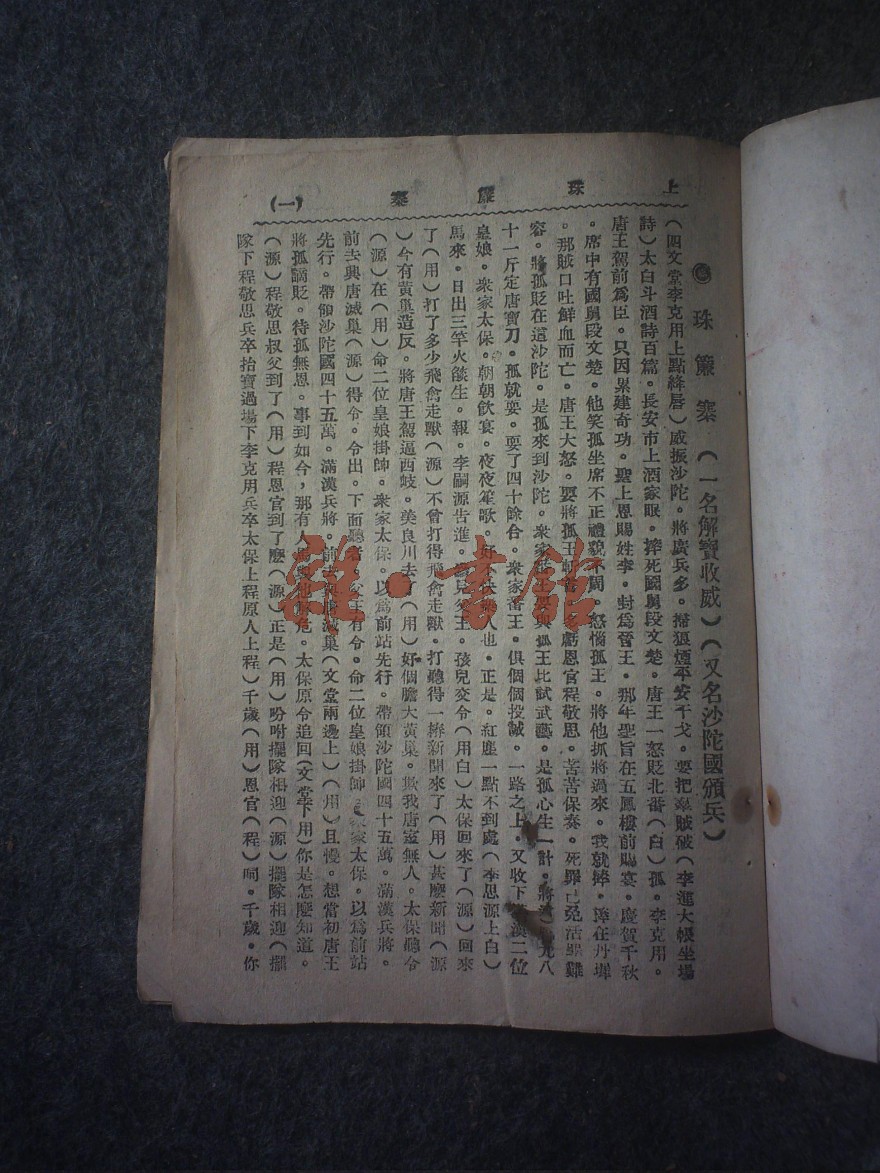 上 珠簾寨 (一)
珠簾寨(一名解寶收威)(又名沙陀國頒兵)
(四文堂李克用上點絳唇)威振沙陀。將廣兵多。掃狼煙平安干戈。要把巢賊破(李進大帳坐場
詩)太白斗酒詩百篇。長安市上酒家眠。摔死國舅段文楚。唐王一怒貶北番(白)孤。李克用。
唐王駕前爲臣。只因累建奇功。聖上恩賜姓李。封爲晉王。那年聖旨在五鳳樓前賜宴。慶賀千秋
。席中有國舅段文楚。他笑孤坐席不正禮貌不周。怒惱孤王。將他抓將過來。我就摔。摔在丹墀
。那賊口吐鮮血而亡。唐王大怒。要將孤王斬首。多虧恩官程敬思。苦苦保奏。死罪 免活罪難
容。將孤貶在這沙陀。是孤來到沙陀。衆家 王要與孤王比試武藝。是孤心生一計。將 八
十一斤定唐寶刀。孤就耍。耍了四十餘合。衆家番王。俱個個投誠。一路之上。又收下 漢二位
皇娘。衆家太保。朝朝飲宴。夜夜笙歌。好不快 人也。正是。紅塵一點不到處(李思源上白)
馬來。日出三竿火燄生。報。李嗣源告進。 兒父王。孩兒交令(用白)太保回來了(源)回來
了(用)打了多少飛禽走獸(源)不曾打得飛禽走獸。打聽得一樁新聞來了(用)甚麽新聞(源
)今有黃巢造反。將唐王駕逼西岐。美良川去了(用)好個膽大黃巢。欺我唐室無人。太保聽令
(源)在(用)命二位皇娘掛帥。衆家太保。以爲前站先行。帶領沙陀國四十五萬。滿漢兵將。
前去興唐滅巢(源)得令。令出。下面聽者。父王有令。命二位皇娘掛帥。衆家太保。以爲前站
先行。帶領沙陀國四十五萬。滿漢兵將。前去興唐滅巢(文堂兩邊上)(用)且慢。想當初唐王
將孤謫貶。待孤無恩。事到如今，那有人馬與他解危。太保原令追回(文堂下用)你是怎麽知道。
(源)程敬思叔父到了(用)程恩官到了麽(源)正是(用)吩咐擺隊相迎(源)擺隊相迎(擺
隊下程敬思兵卒抬寶過場下李克用兵卒太保上程原人上程)千歲(用)恩官(程)呵。千歲。你
雜·書館